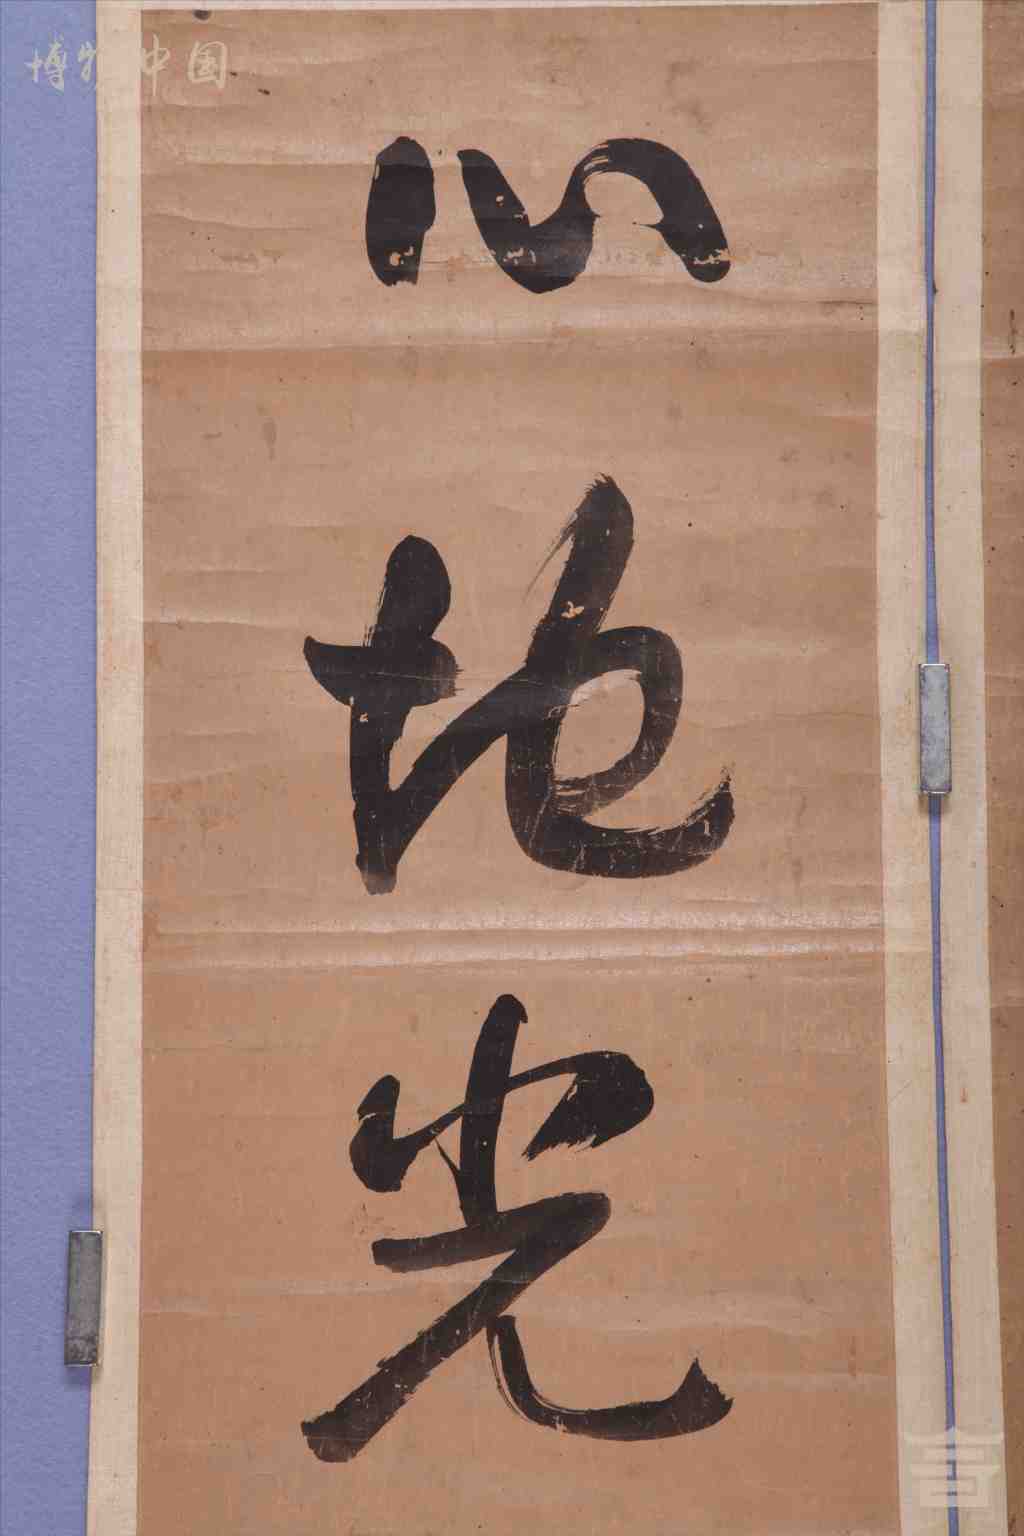 博物中国
心地光